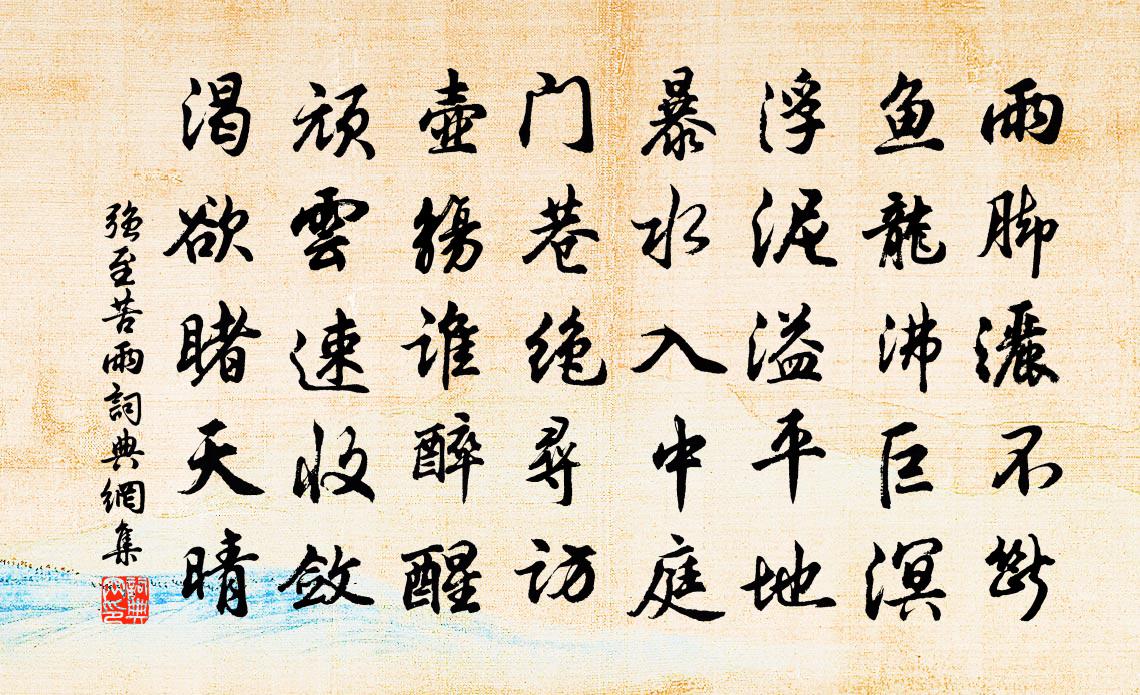 雨脚灑不断
鱼龍沸巨溟
浮泥溢平地
暴水入中庭
门巷绝尋访
壺觴谁醉醒
顽雲速收敛
渴欲睹天晴
強至苦雨詞典網集